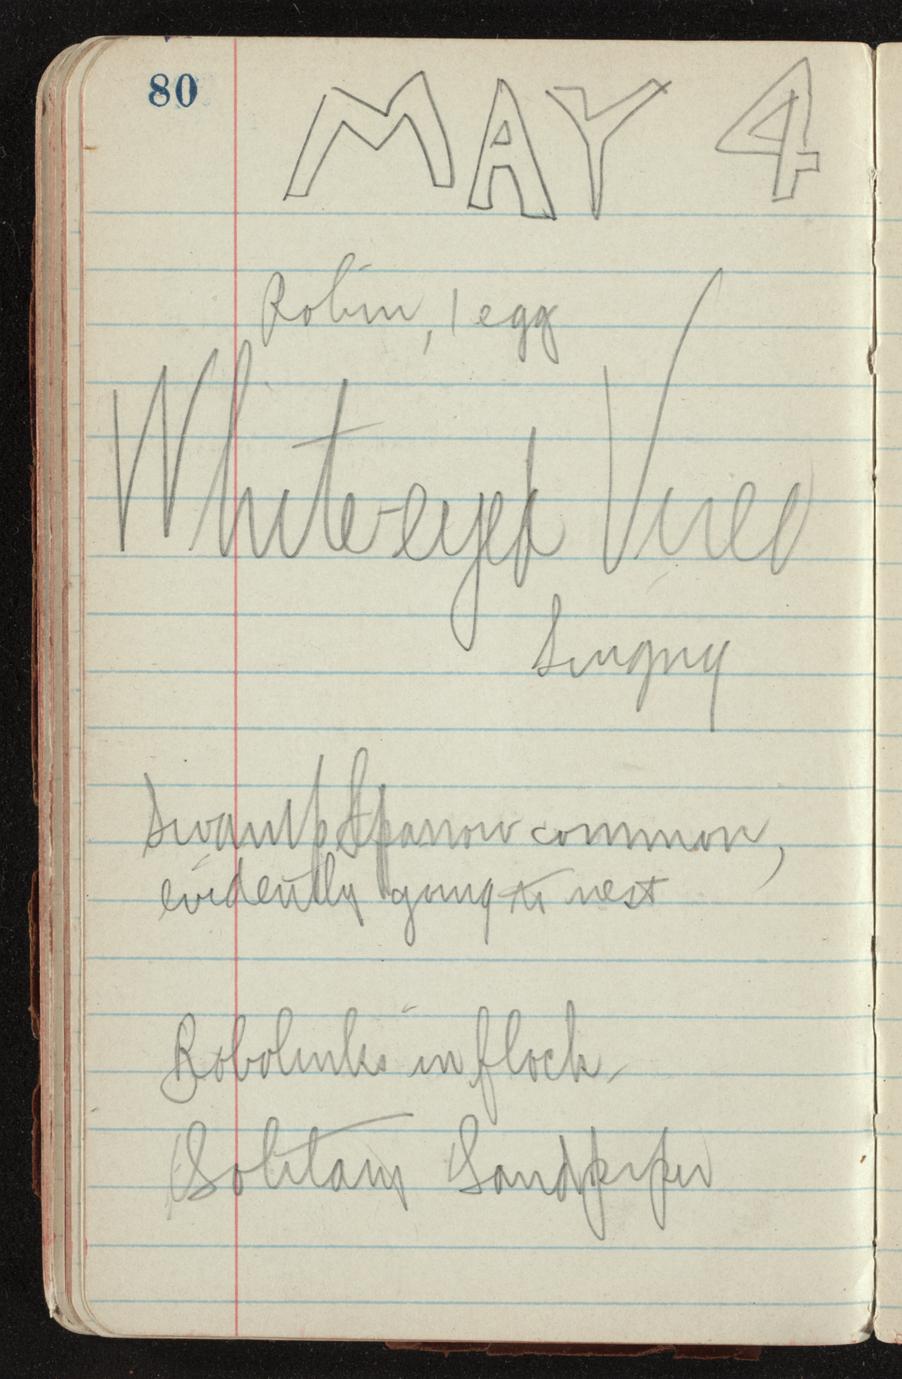 80
MAY 4
Robin, 1 egg
White-eyed Vireo
Singing
Swamp Sparrow common,
evidently going to nest
Bobolinks in flock.
Solitary Sandpiper